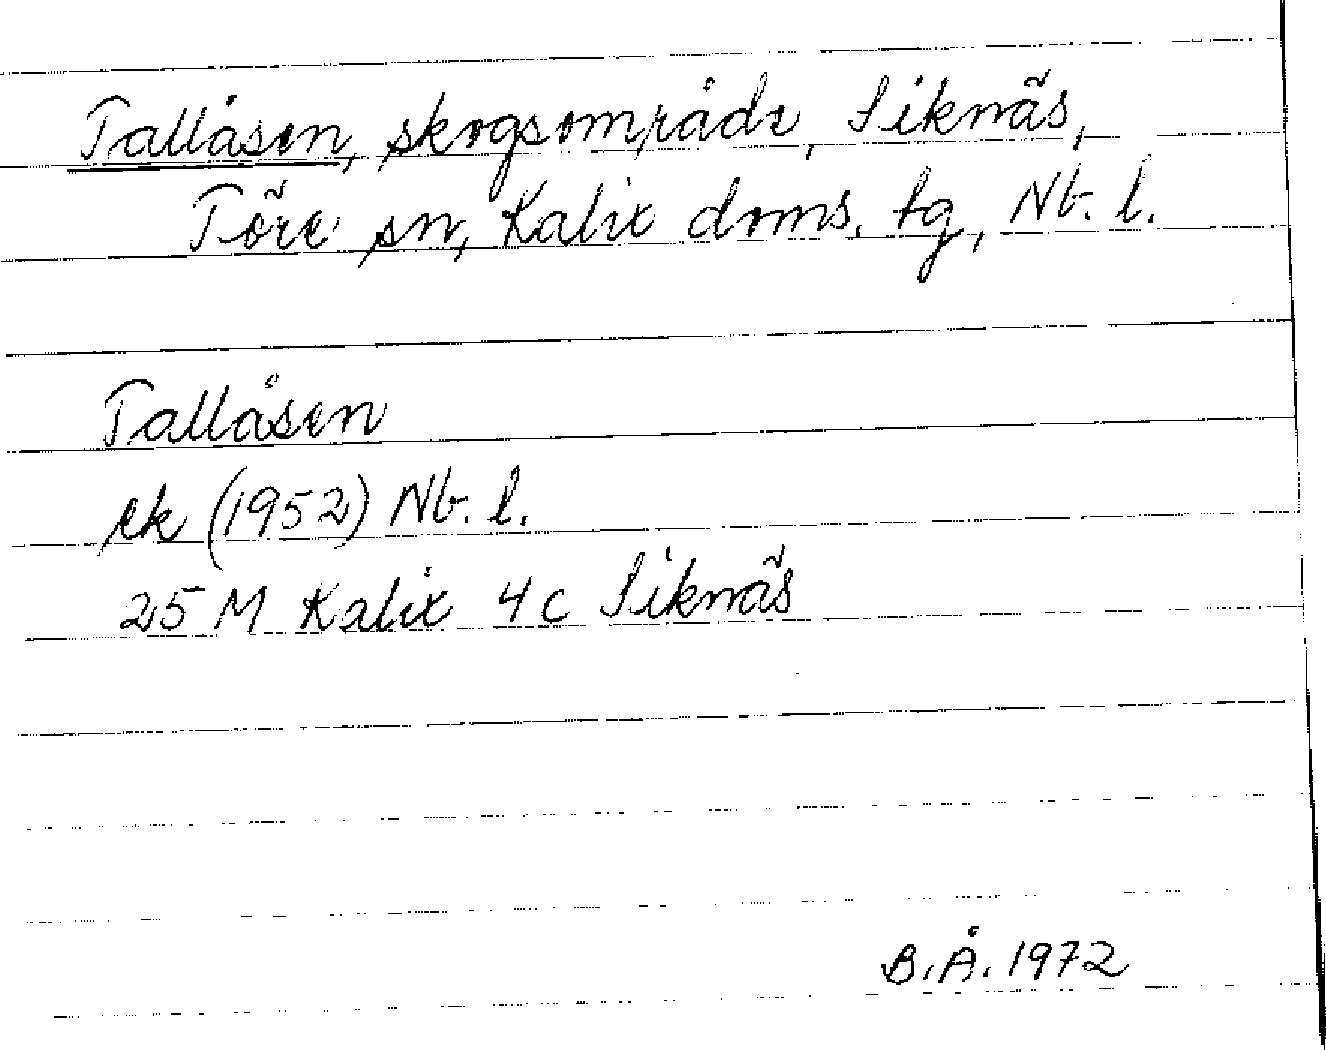 Tallåsen, skogsområde, Siknäs,
Töre sn, Kalix doms. tg, Nb. l.
Tallåsen
ek (1952) Nb. l.
25 M Kalix 4c Siknäs
B.Å. 1972